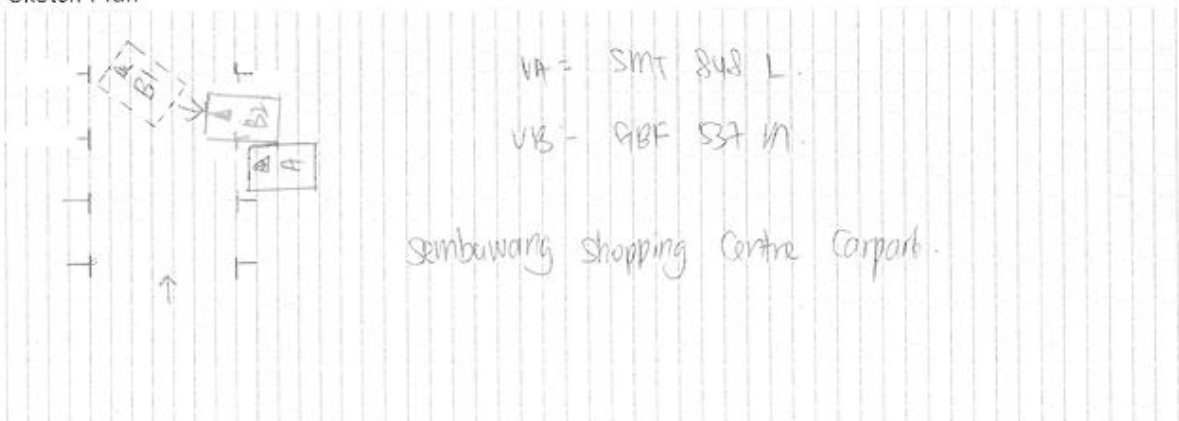 B1
B2
A
VA = SMT 848 L.
VB - GBF 537 M.
Sembawang Shopping Centre Carpark.